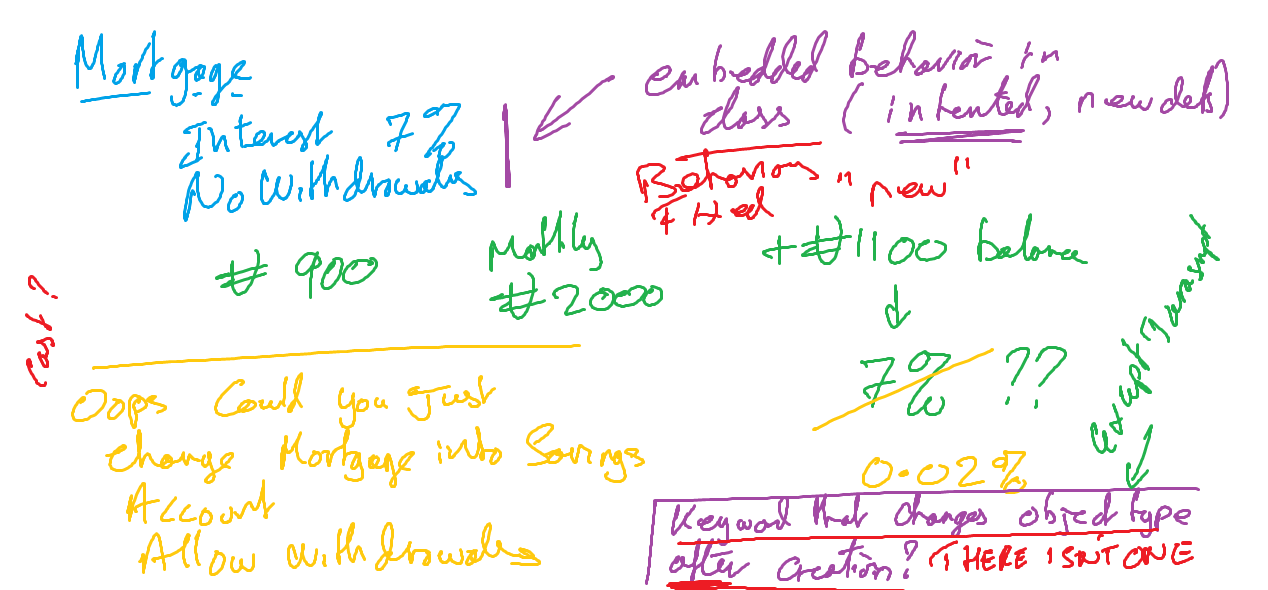 Mortgage
Interest 7%
No Withdrawals
embedded behavior in
class (inherited, new defs)
Behaviors "new"
Fixed
# 900
Monthly
# 2000
+ # 1100 balance
7% ??
0.02%
cast?
Oops Could you Just
change Mortgage into Savings
Account
Allow withdrawals
except Javascript
Keyword that changes object type
after creation? THERE ISN'T ONE